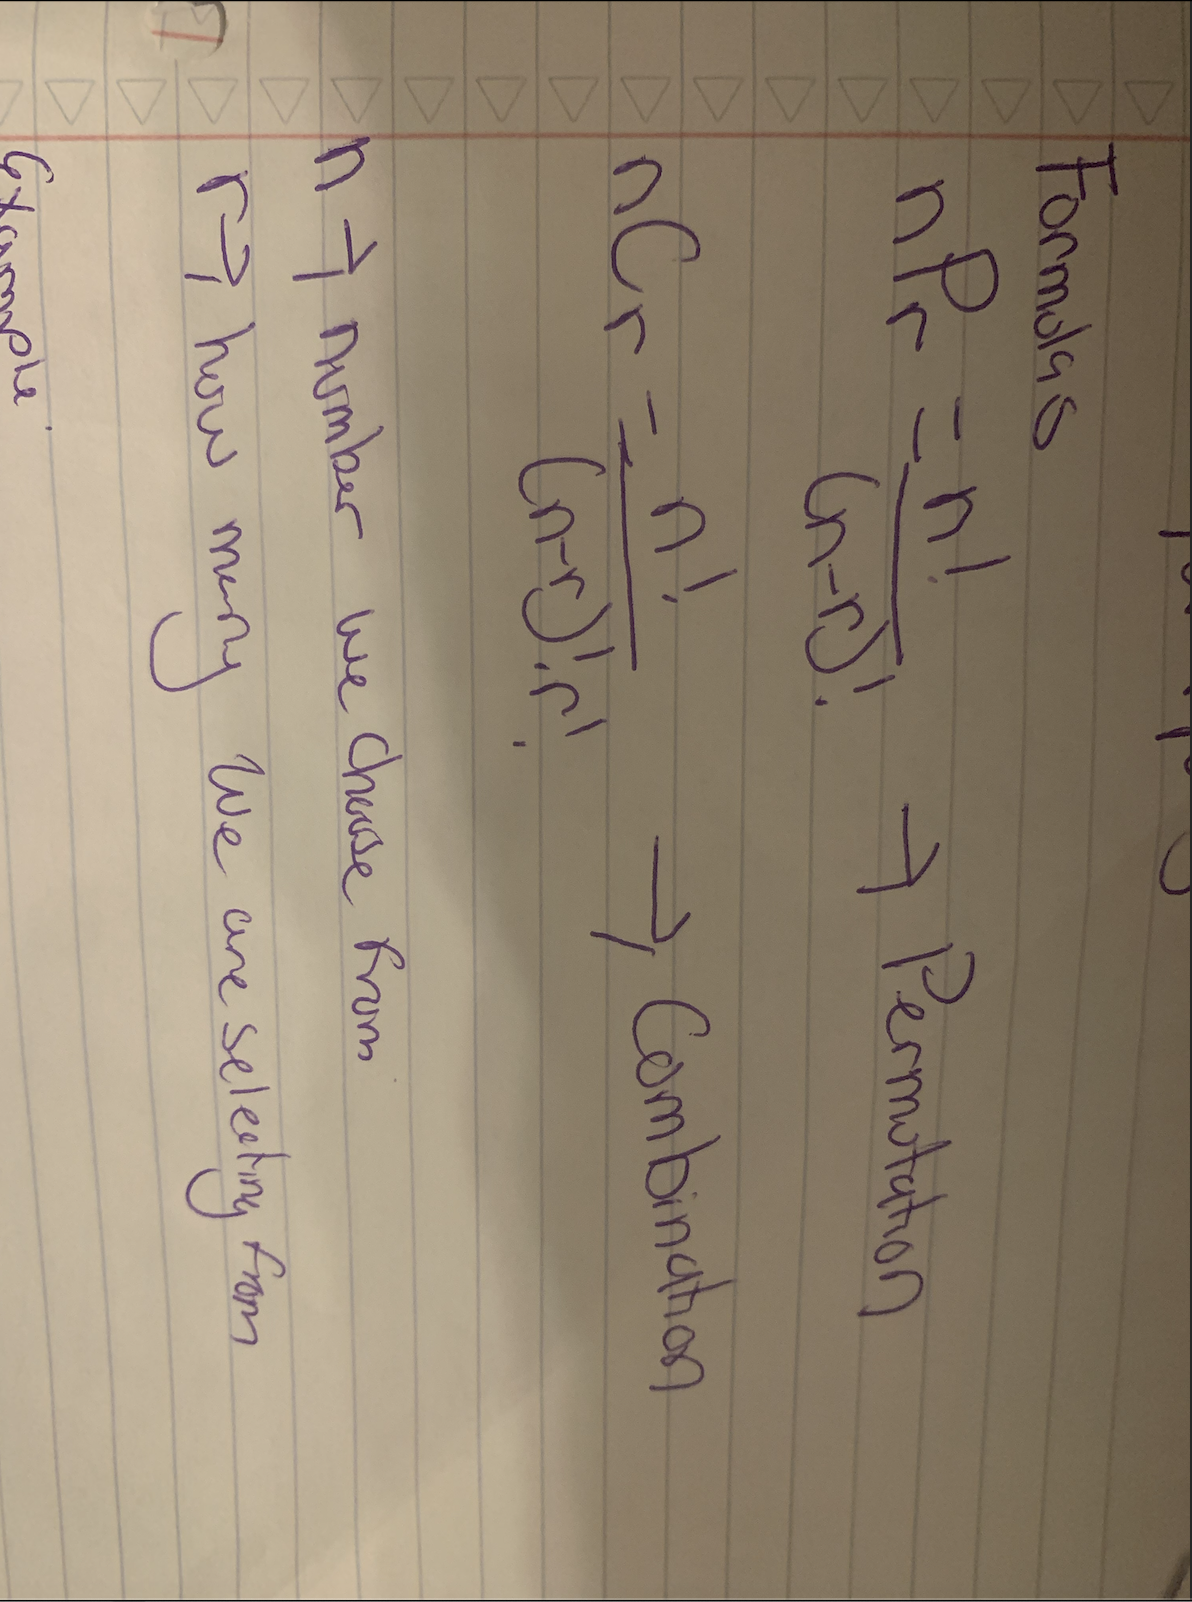 Formulas
nPr = n!
(n-r)! → Permutation
nCr = n!
(n-r)!.r! → Combination
n → number we choose from
r → how many we are selecting from
Example.